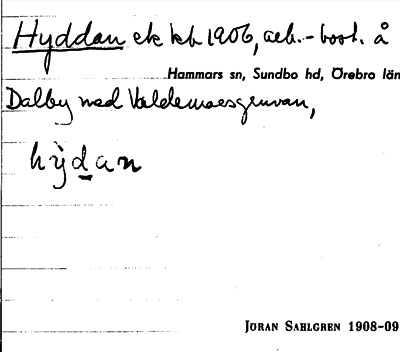 Hyddan ek kb 1906, arb.-bost. å
Hammars sn, Sundbo hd, Örebro län
Dalby med Valdemarsgruvan,
hỳdan
JÖRAN SAHLGREN 1908-09